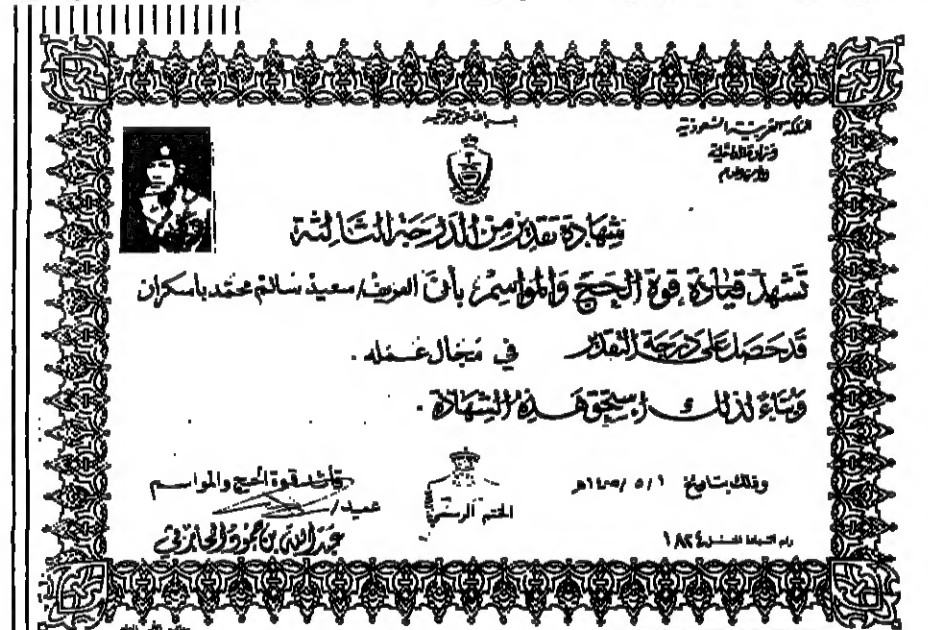 بسم الله الرحمن الرحيم
المملكة العربية السعودية
وزارة الداخلية
والأمن العام
شهادة تقدير من الدرجة الثالثة
تشهد قيادة قوة الحج والمواسم بأن العريف/ سعيد سالم محمد باسكران
قد حصل على درجة التقدير في مجال عمله .
وبناءً لذلك استحق هذه الشهادة .
وذلك بتاريخ ١ / ٥ / ١٤٠٥هـ
قائد قوة الحج والمواسم
عميد/
الختم الرسمي
١٨٢٤